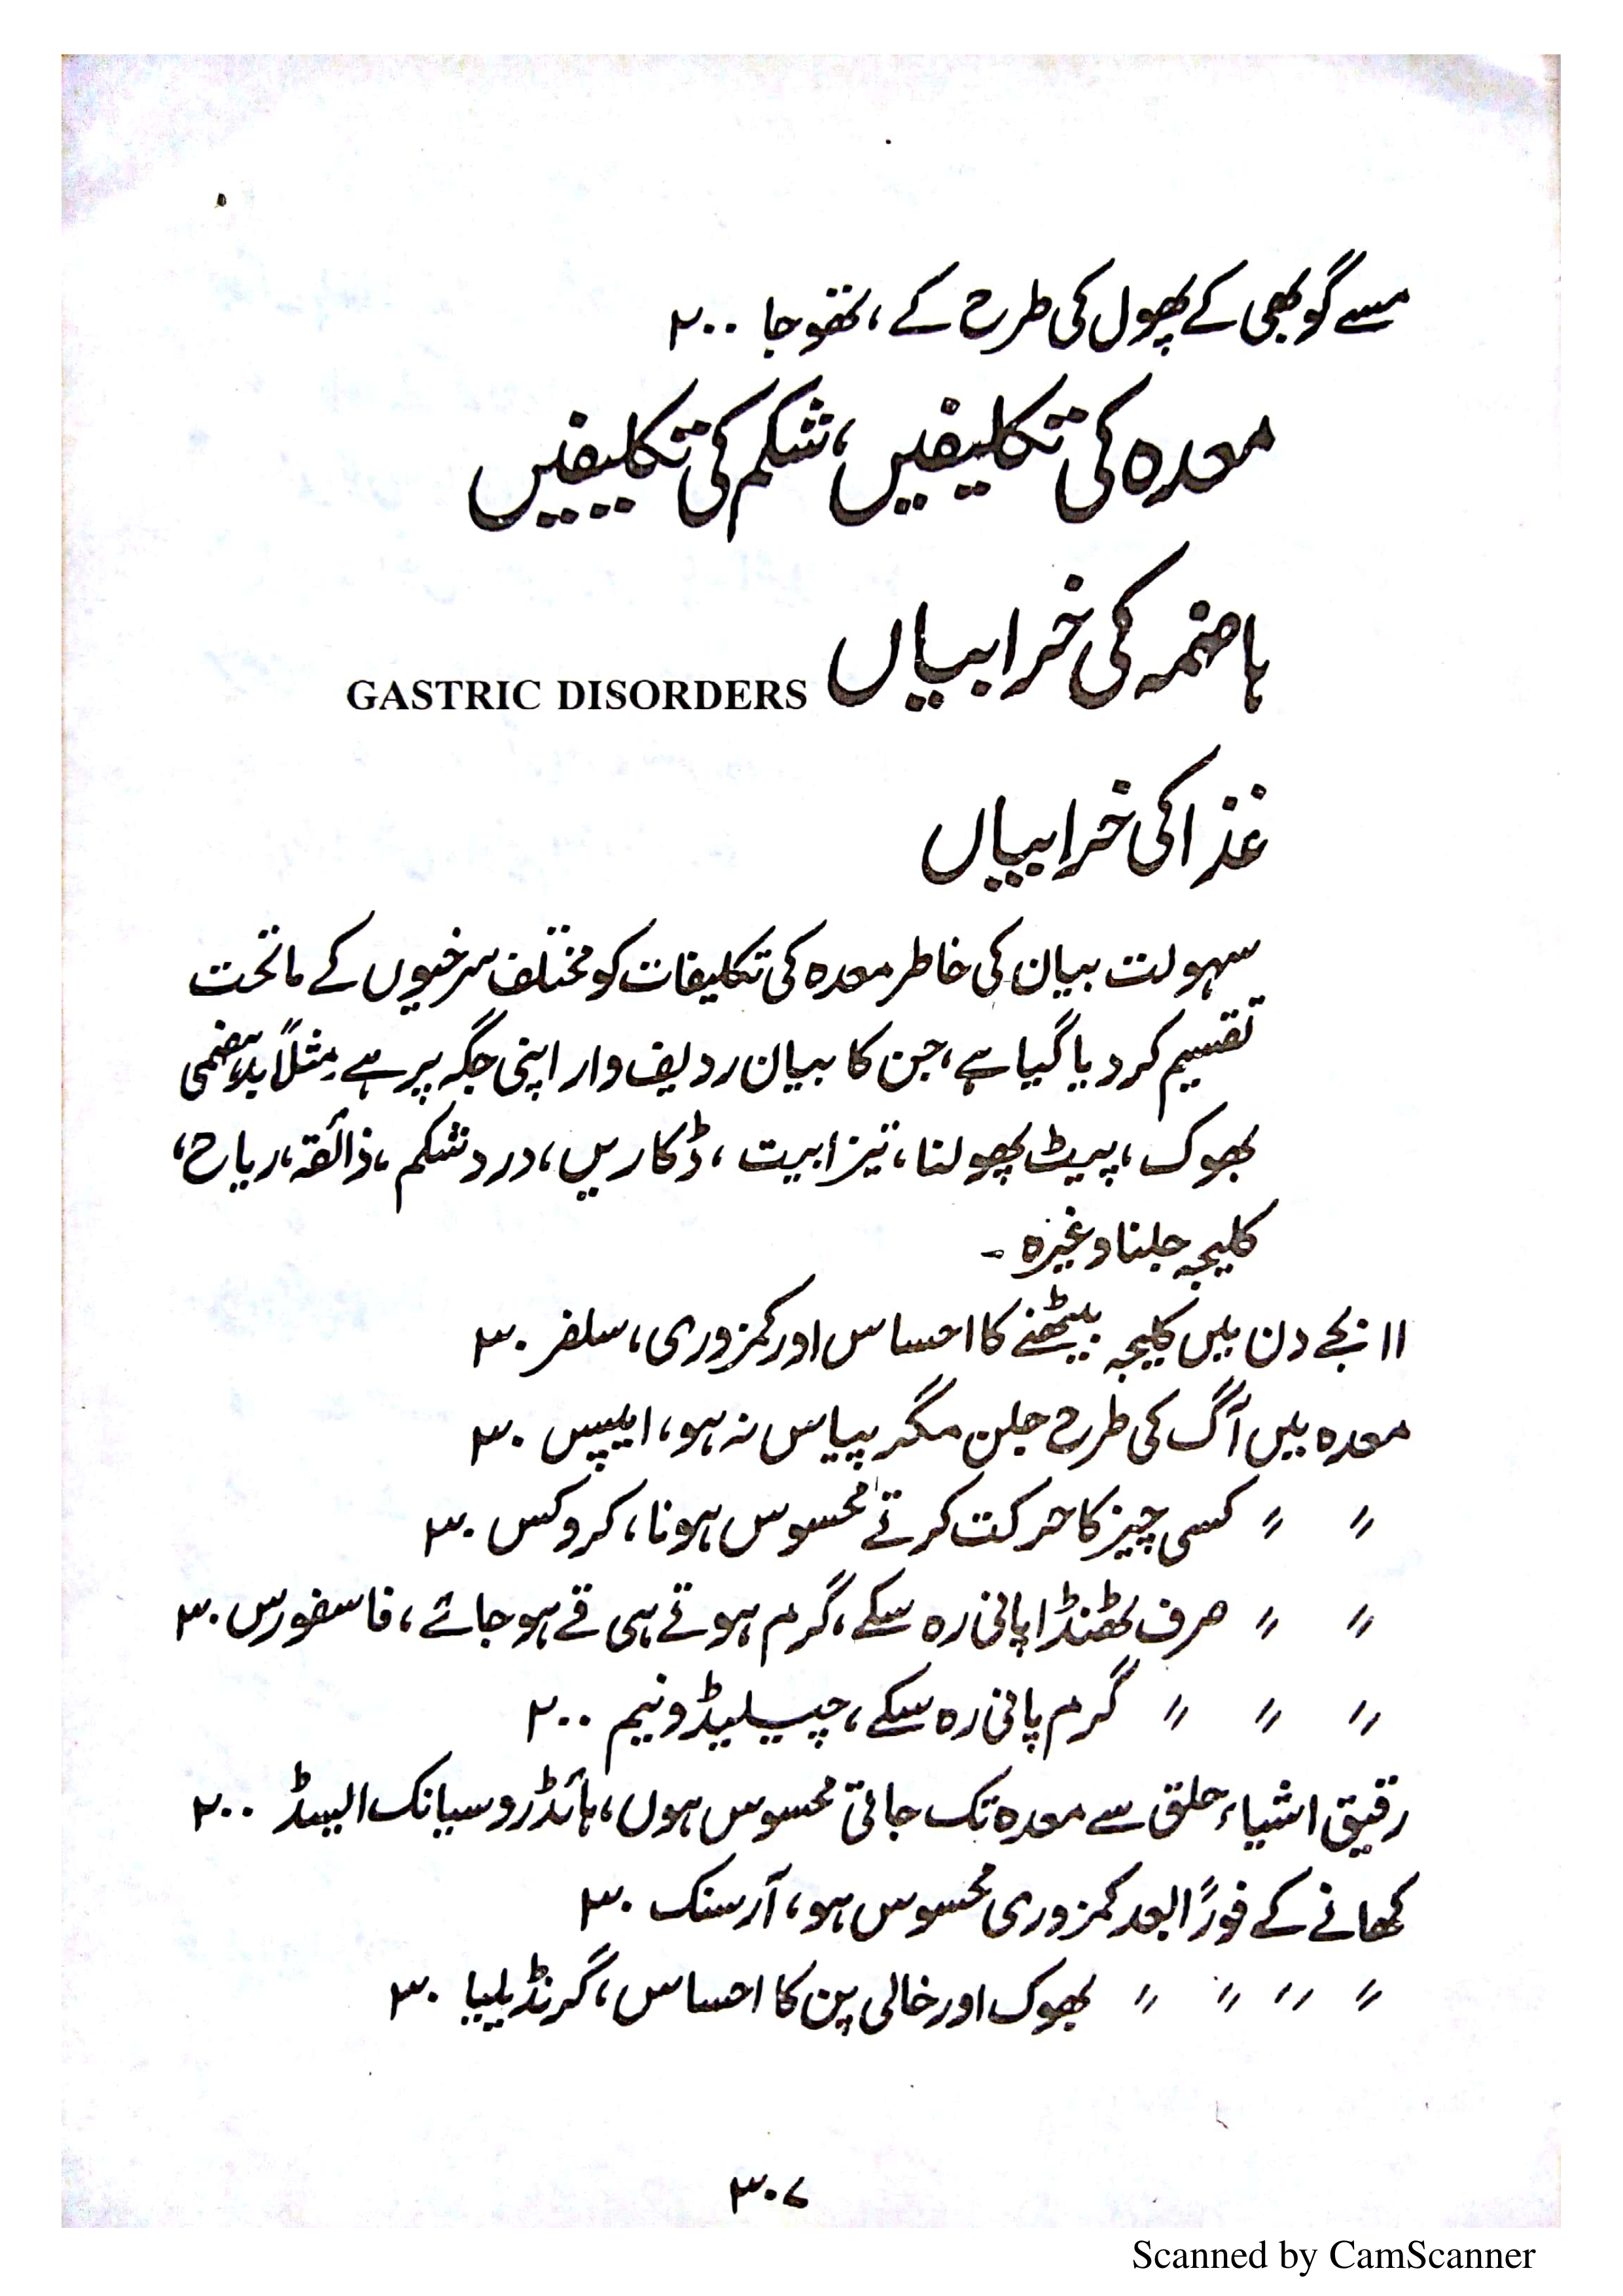 مسے گوبھی کے پھول کی طرح کے، تھوجا ۲۰۰
معدہ کی تکلیفیں، شکم کی تکلیفیں
ہاضمہ کی خرابیاں GASTRIC DISORDERS
غذا کی خرابیاں
سہولت بیان کی خاطر معدہ کی تکلیفات کو مختلف سرخیوں کے ماتحت
تقسیم کر دیا گیا ہے، جن کا بیان ردیف وار اپنی جگہ پر ہے۔ مثلاً بدہضمی
بھوک، پیٹ پھولنا، تیزابیت، ڈکاریں، درد شکم، ذائقہ، ریاح،
کلیجہ جلنا وغیرہ ۔
۱۱ بجے دن میں کلیجہ بیٹھنے کا احساس اور کمزوری، سلفر ۳۰
معدہ میں آگ کی طرح جلن مگر پیاس نہ ہو، ایپس ۳۰
〃 〃 کسی چیز کا حرکت کرتے محسوس ہونا، کروکس ۳۰
〃 〃 صرف ٹھنڈا پانی رہ سکے، گرم ہوتے ہی قے ہو جائے، فاسفورس ۳۰
〃 〃 〃 گرم پانی رہ سکے، چیلیڈونیم ۲۰۰
رقیق اشیاء حلق سے معدہ تک جاتی محسوس ہوں، ہائڈروسیانک ایسڈ ۲۰۰
کھانے کے فوراً بعد کمزوری محسوس ہو، آرسنک ۳۰
〃 〃 〃 〃 بھوک اور خالی پن کا احساس، گرنڈیلیا ۳۰
۳۰۷
Scanned by CamScanner